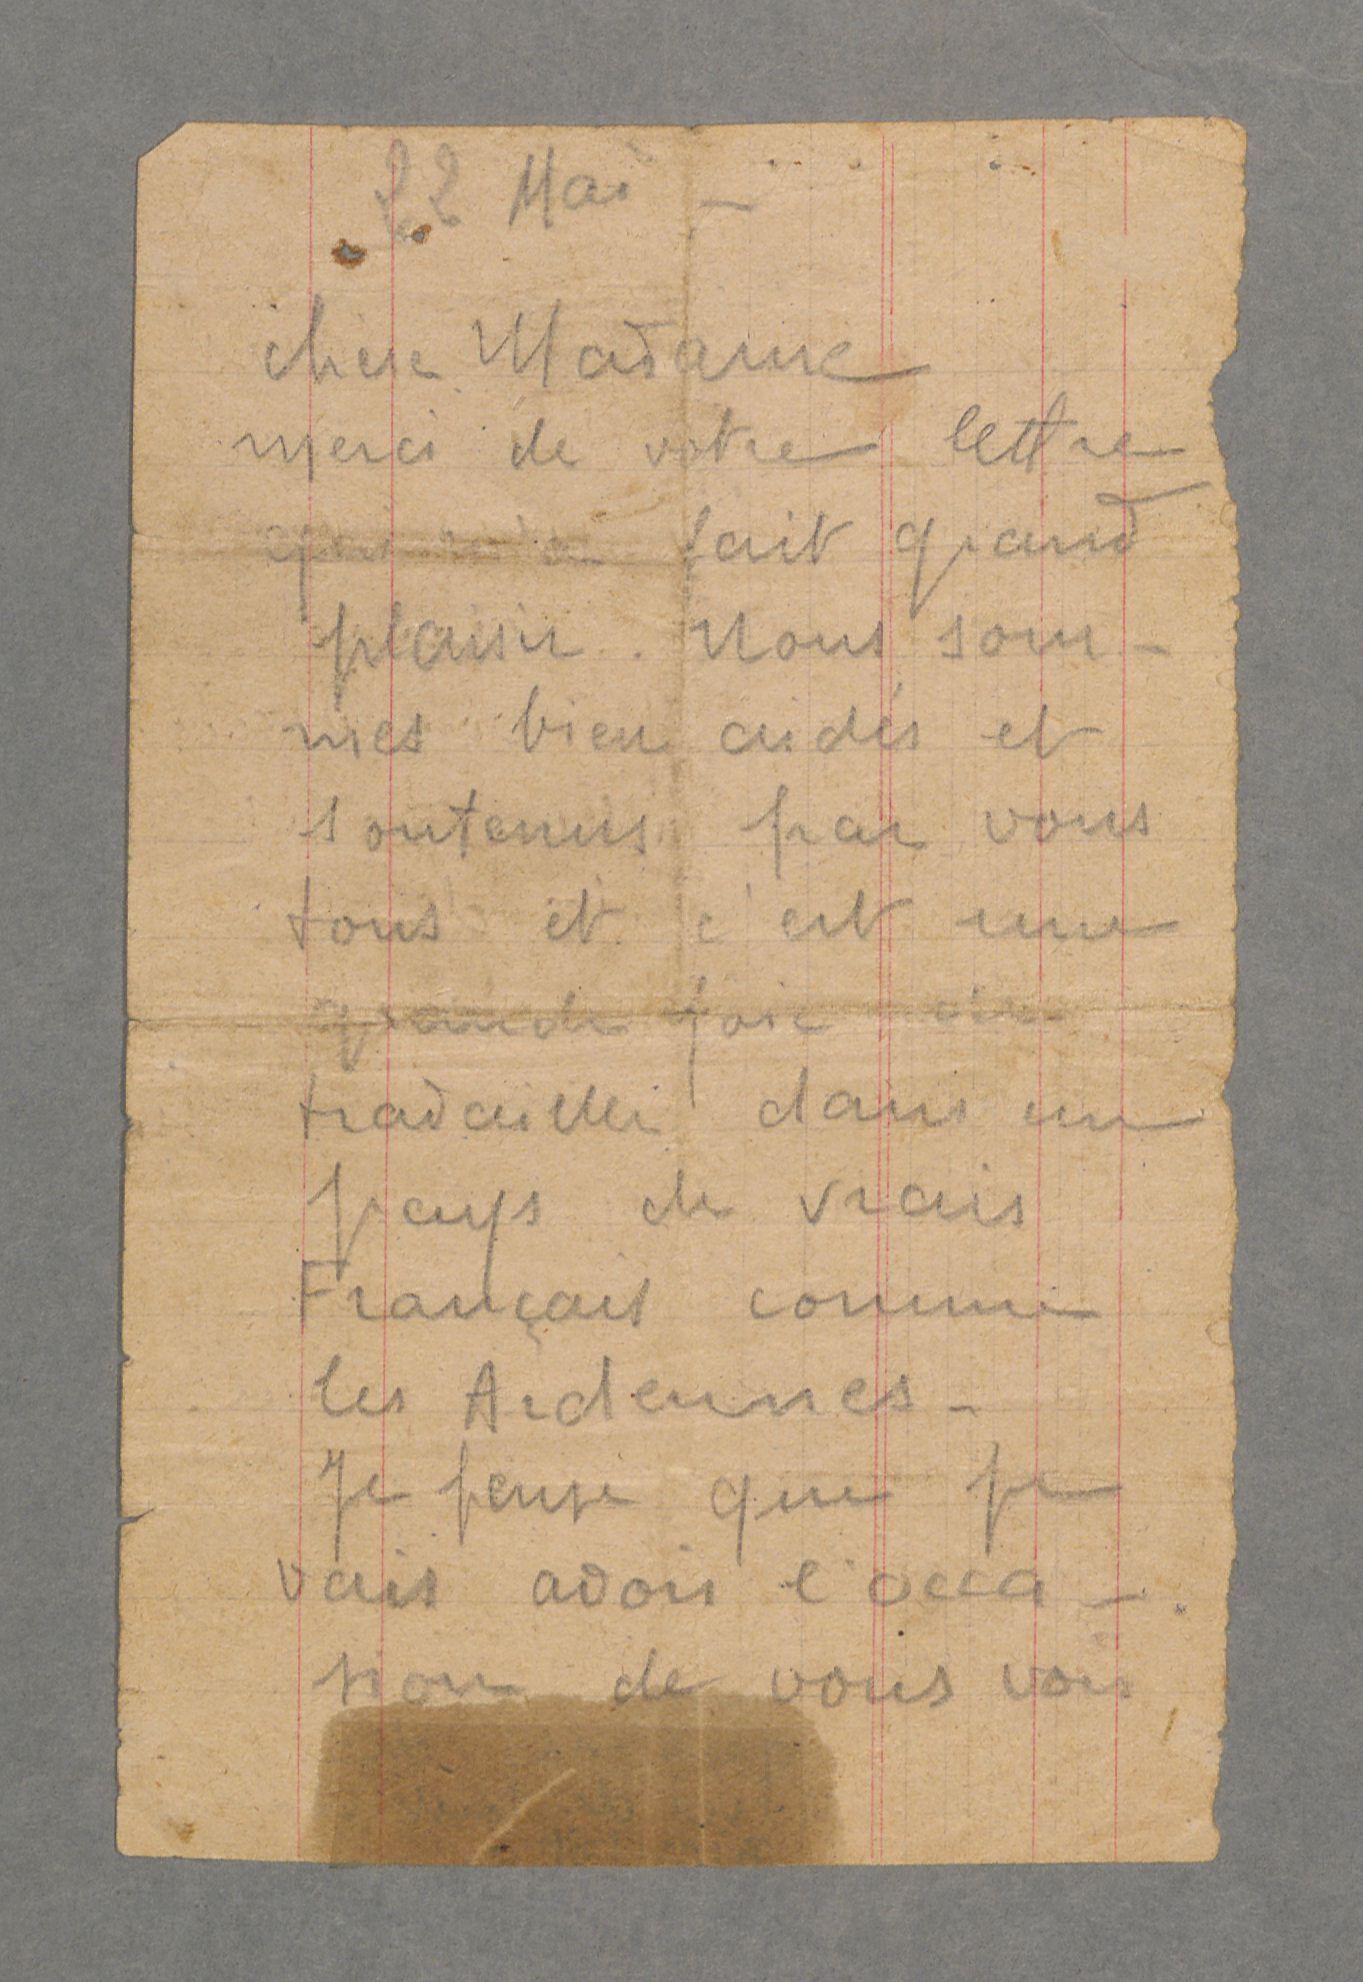 22 Mai -
chère Madame
merci de votre lettre
qui m'a fait grand
plaisir. Nous som-
mes bien aidés et
soutenus par vous
tous et c'est une
grande joie de
travailler dans un
pays de vrais
Français comme
les Ardennes -
Je pense que je
vais avoir l'occa-
sion de vous voir